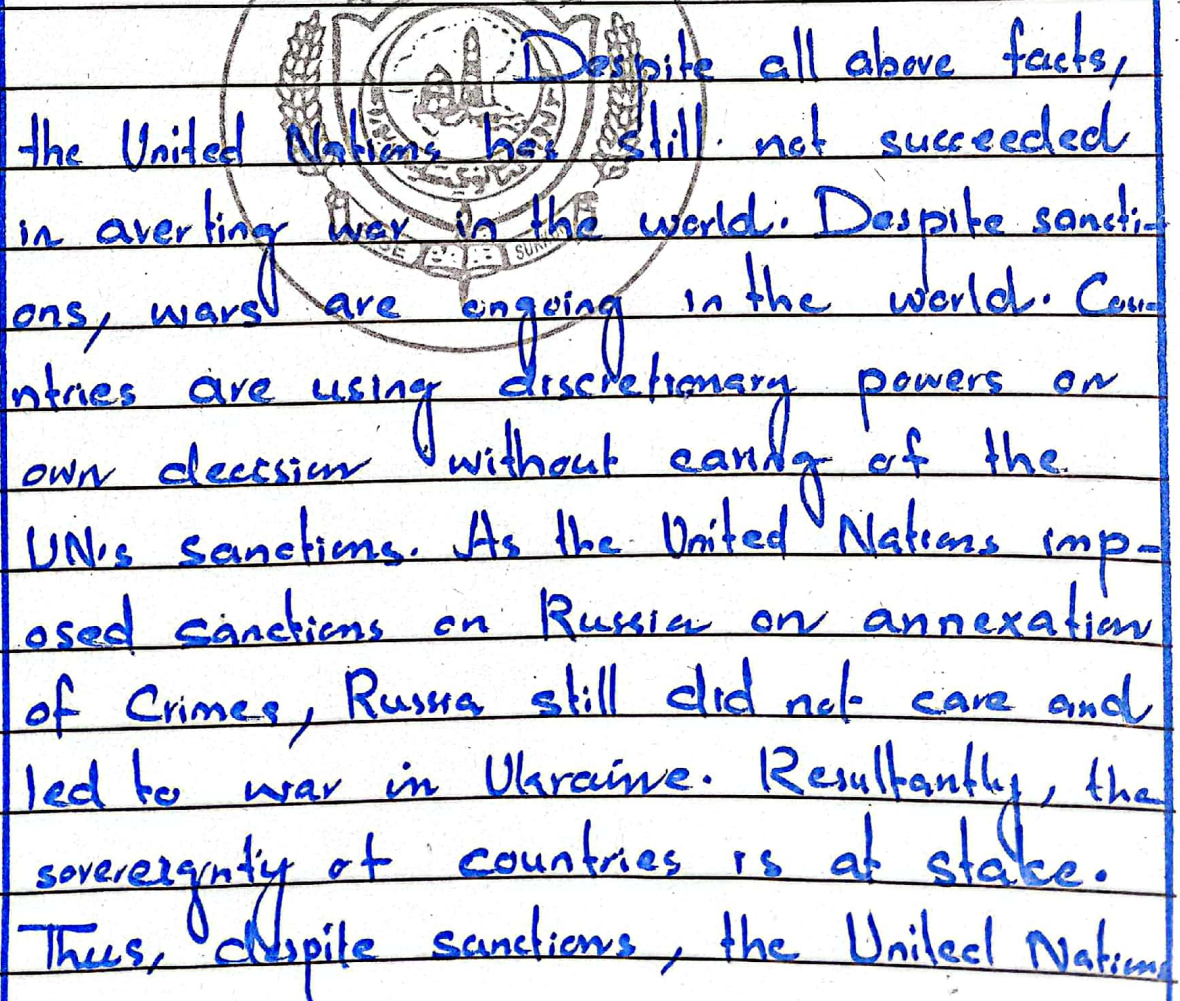 Despite all above facts,
the United Nations has still not succeeded
in averting war in the world. Despite sancti-
ons, wars are ongoing in the world. Cou-
ntries are using discretionary powers on
own decision without caring of the
UN's sanctions. As the United Nations imp-
osed sanctions on Russia on annexation
of Crimes, Russia still did not care and
led to war in Ukraine. Resultantly, the
sovereignty of countries is at stake.
Thus, despite sanctions, the United Nations